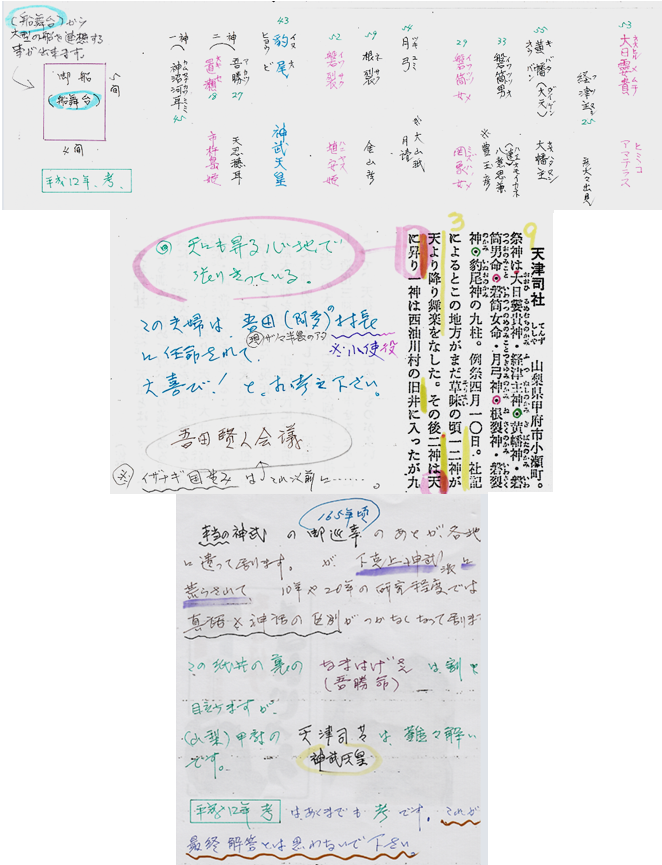 (船舞台)から
大型の船を連想する
事が出来ます。
御船
(船舞台)
五間
六間
平成12年、考。
53
大日孁貴
アマテラス
ヒミコ
経津主
25
彦火々出見
55
黄幡
(大天)
大幡主
33
磐筒男
八意思兼
※豊玉彦
29
磐筒女
罔象女
54
月弓
大山祇
月読
59
根裂
金山彦
52
磐裂
埴安姫
43
豹尾
神武天皇
二神
吾勝
27
天忍穂耳
置瀬
18
市杵島姫
一神
神沼河耳
45
天津司社 てんずし 山梨県甲府市小瀬町。
祭神は大日孁貴神・経津主神・黄幡神・磐
筒男命・磐筒女命・月弓神・根裂神・磐裂
神・豹尾神の九柱。例祭四月一〇日。社記
によるとこの地方がまだ草昧の頃一二神が
天より降り舞楽をなした。その後二神は天
に昇り一神は西油川村の旧井に入ったが九
9
3
天にも昇る心地で
張りきっている。
この夫婦は、吾田(阿多)の村長
に任命されて、
※小使役
大喜び!と、お考え下さい。
吾田賢人会議
イザナギ国生みはこれ以前に……。
165年頃
本当の神武の御巡幸のあとが、各地
に遺って居ります。が、下克上神武派に
荒らされて 10年や20年の研究程度では
真話と神話の区別がつかなくなって居ます
この紙の裏のなまはげさんは割と
(吾勝命)
目立ちますが、
(山梨)甲斐の天津司等は、難々解い
です。
神武天皇
平成12年 考 はあくまでも考です。これが
最終解答とは思わないで下さい。